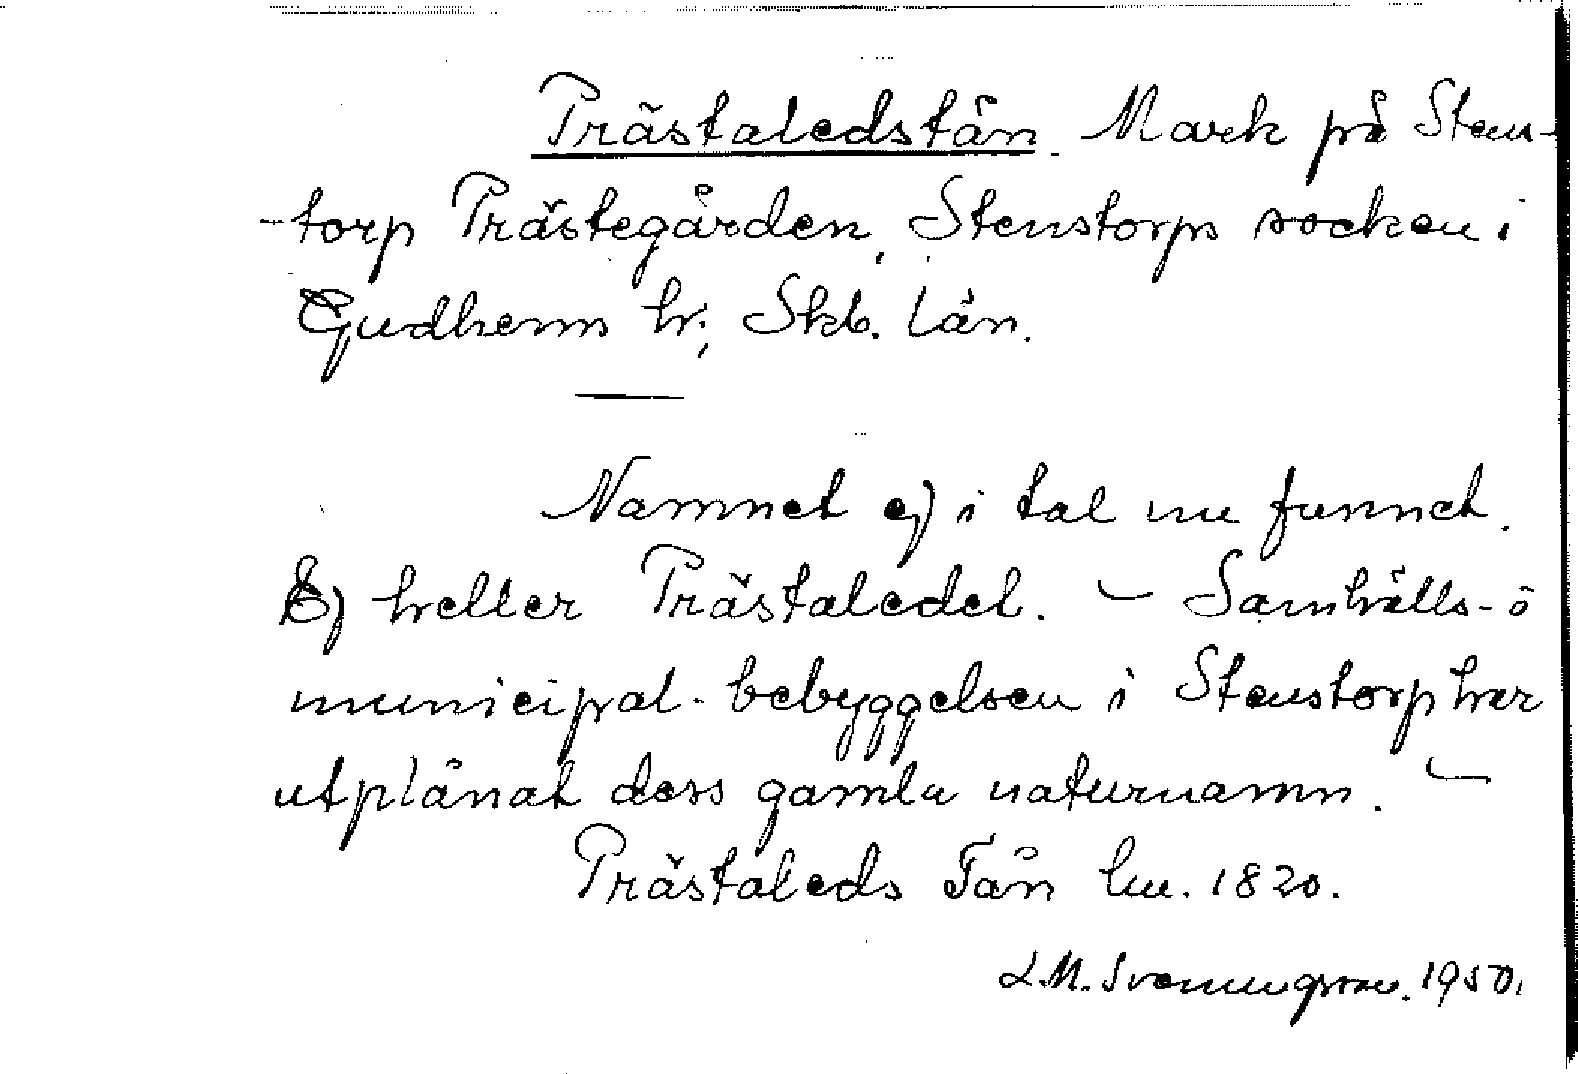 Prästaledstån. Mark på Sten-
-torp Prästegården, Stenstorps socken i
Gudhems hr., Skb. län.
Namnet ej i tal nu funnet.
Ej heller Prästaledet. – Samhälls- o
municipal-bebyggelsen i Stenstorp har
utplånat dess gamla naturnamn. –
Prästaleds Tån lm. 1820.
L.M. Svenungsson. 1950.